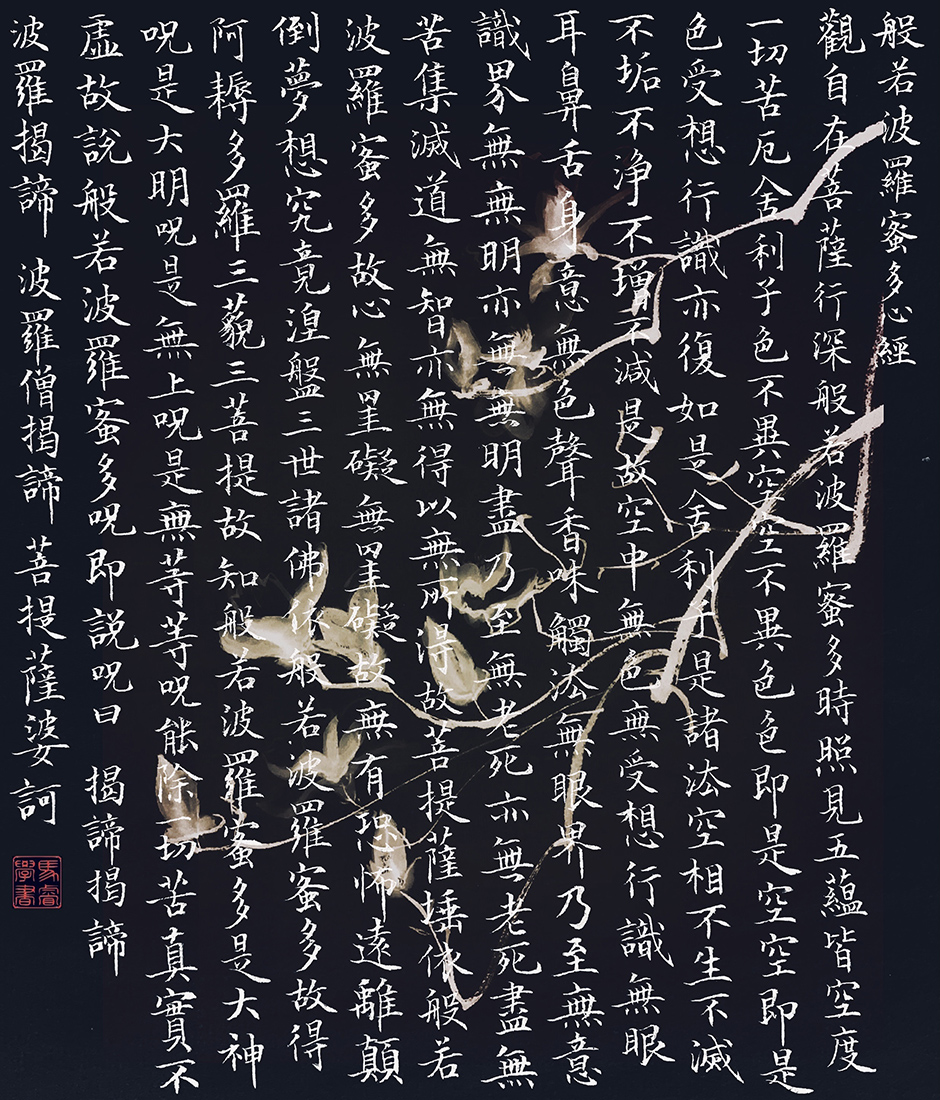 般若波羅蜜多心經
觀自在菩薩行深般若波羅蜜多時照見五蘊皆空度
一切苦厄舍利子色不異空空不異色色即是空空即是
色受想行識亦復如是舍利子是諸法空相不生不滅
不垢不浄不增不減是故空中無色無受想行識無眼
耳鼻舌身意無色聲香味觸法無眼界乃至無意
識界無無明亦無無明盡乃至無老死亦無老死盡無
苦集滅道無智亦無得以無所得故菩提薩埵依般若
波羅蜜多故心無罣礙無罣礙故無有恐怖遠離顛
倒夢想究竟湼盤三世諸佛依般若波羅蜜多故得
阿耨多羅三藐三菩提故知般若波羅蜜多是大神
呪是大明呪是無上呪是無等等呪能除一切苦真實不
虛故說般若波羅蜜多呪即説呪曰 揭諦揭諦
波羅揭諦 波羅僧揭諦 菩提薩婆訶
馬睿
學書